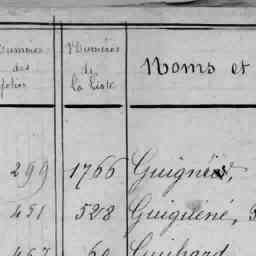 Numéros des folios
Numéros de la liste
Noms et
299 1766
451 528 Guiguené,
467 60 Guihard